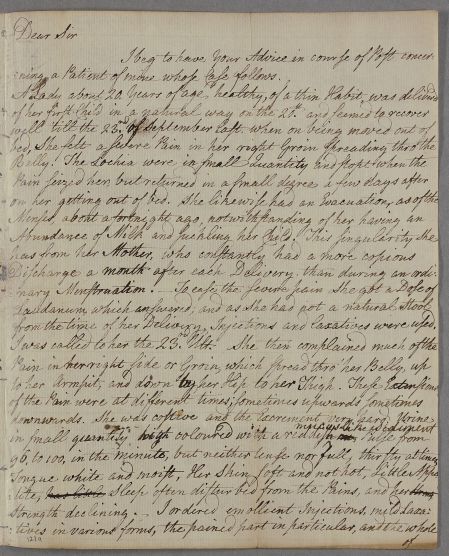 Dear Sir
I beg to have Your Advice in course of Post concer-
ning a Patient of mine whose Case follows.
A Lady about 20 Years of age, healthy, of a thin Habit, was deliverd
of her first Child in a natural way on the 20th. and seemed to recover
well till the 23rd. of September last when on being moved out of
bed, She felt a severe Pain in her right Groin spreading thro the
Belly. The Lochea were in small Quantity and stopt when the
Pain seized her, but returned in a small degree a few days after
on her getting out of bed. She likewise had an Evacuation, as of the
Menses, about a fortnight ago, notwithstanding of her having an
Abundance of Milk and suckling her Child. This singularity She
has from her Mother, who constantly had a more copious
Discharge a month after each Delivery, than during an ordi-
nary Menstruation. — To ease the severe pain She got a Dose of
Laudanum which answered, and as she had not a natural Stool
from the time of her Delivery, Injections and Laxatives were used.
I was called to her the 23rd. Ult. She then complained much of the
Pain in her right side or Groin, which spread thro' her Belly, up
to her Armpit, and down by her Hip to her Thigh. These
of the Pain were at different times; sometimes upwards sometimes
downwards. She was costive and the Excrement very hard; Urine
in small quantity high coloured with a reddish sediment Pulse from
96, to 100, in the minute, but neither tense nor full, thirsty at times,
Tongue white and moist, Her Skin soft and not hot, Little Appe-
tite, Sleep often disturbed from the Pains, and her
Strength declining. — I ordered emollient Injections, mild Laxa-
tives in various forms, the pained part in particular, and the whole
of